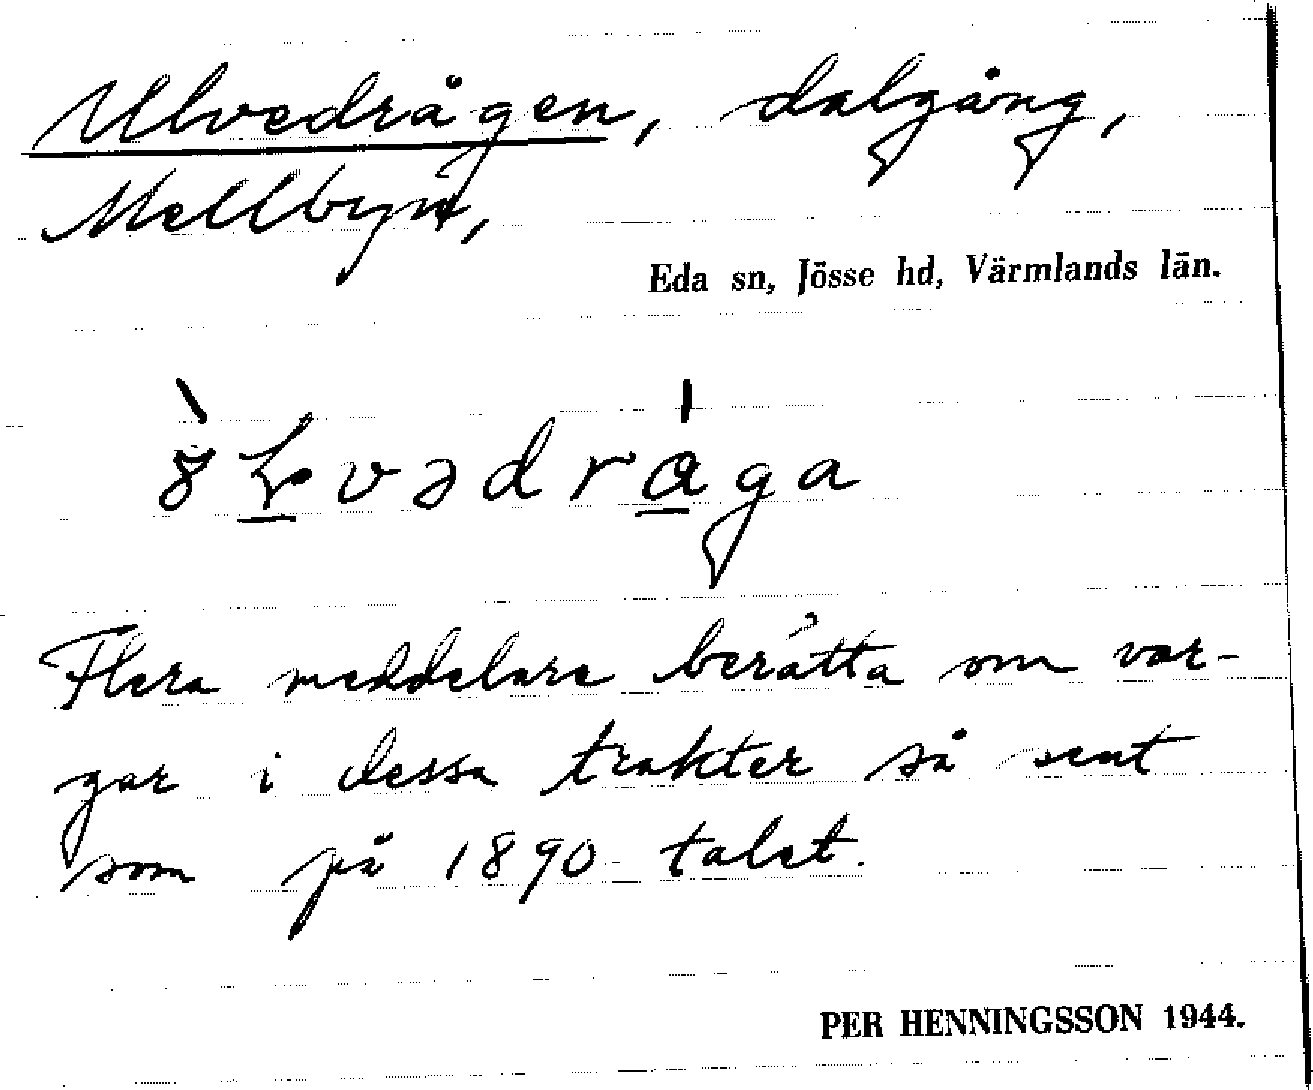 Ulvedrågen, dalgång,
Mellbyn,
Eda sn, Jösse hd, Värmlands län.
Flera meddelare berätta om var-
gar i dessa trakter så sent
som på 1890-talet.
PER HENNINGSSON 1944.